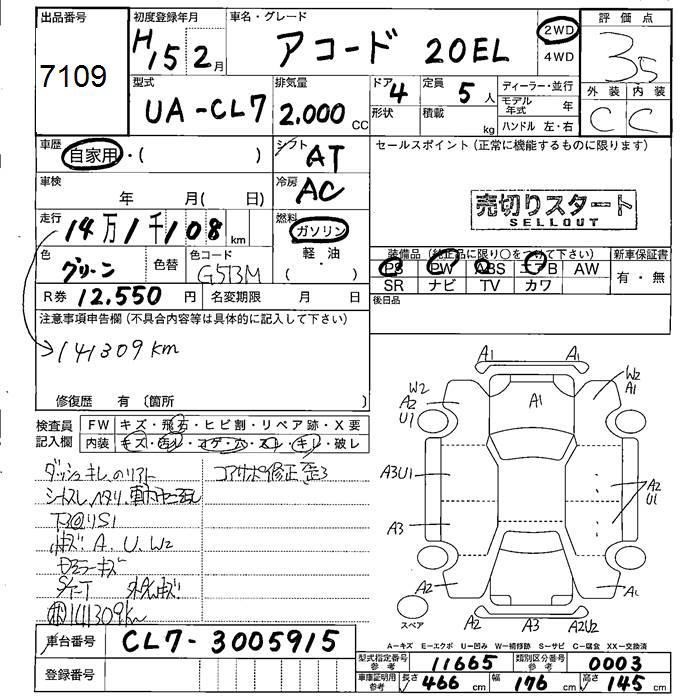 出品番号
7109
初度登録年月
H15 2月
車名・グレード
アコード 20EL
2WD
4WD
評価点
3.5
外装 内装
C C
型式
UA-CL7
排気量
2.000 CC
ドア 4
形状
定員 5 人
積載 kg
ディーラー・並行
モデル年式 年
ハンドル 左・右
車歴
自家用・( )
シフト AT
セールスポイント (正常に機能するものに限ります)
車検 年 月( 日)
冷房 AC
売切りスタート
SELLOUT
走行 14万1千108 km
燃料
ガソリン
軽・油
( )
色 グリーン
色替
色コード G513M
装備品 (純正品に限り○をつけて下さい)
PS PW ABS エアB AW
SR ナビ TV カワ
新車保証書
有・無
R券 12.550 円
名変期限 月 日
後日品
注意事項申告欄 (不具合内容等は具体的に記入して下さい)
141309km
修復歴 有 (箇所 )
検査員記入欄
FW キズ・飛石・ヒビ割・リペア跡・X要
内装 キズ・汚レ・コゲ・穴・スレ・キレ・破レ
コアサポ修正歪
キズ A.U.W2
141309km
車台番号 CL7-3005915
登録番号
A1 A1
W2 A2 U1
A1
W2 A1
A3U1
A2 U1
A3
A2
A1
A2 A3 A2U2
スペア
A-キズ E-エクボ U-凹み W-補修跡 S-サビ C-腐食 XX-交換済
型式指定番号 参考 11665
類別区分番号 参考 0003
車庫証明用 参考 長さ 466 cm 幅 176 cm 高さ 145 cm